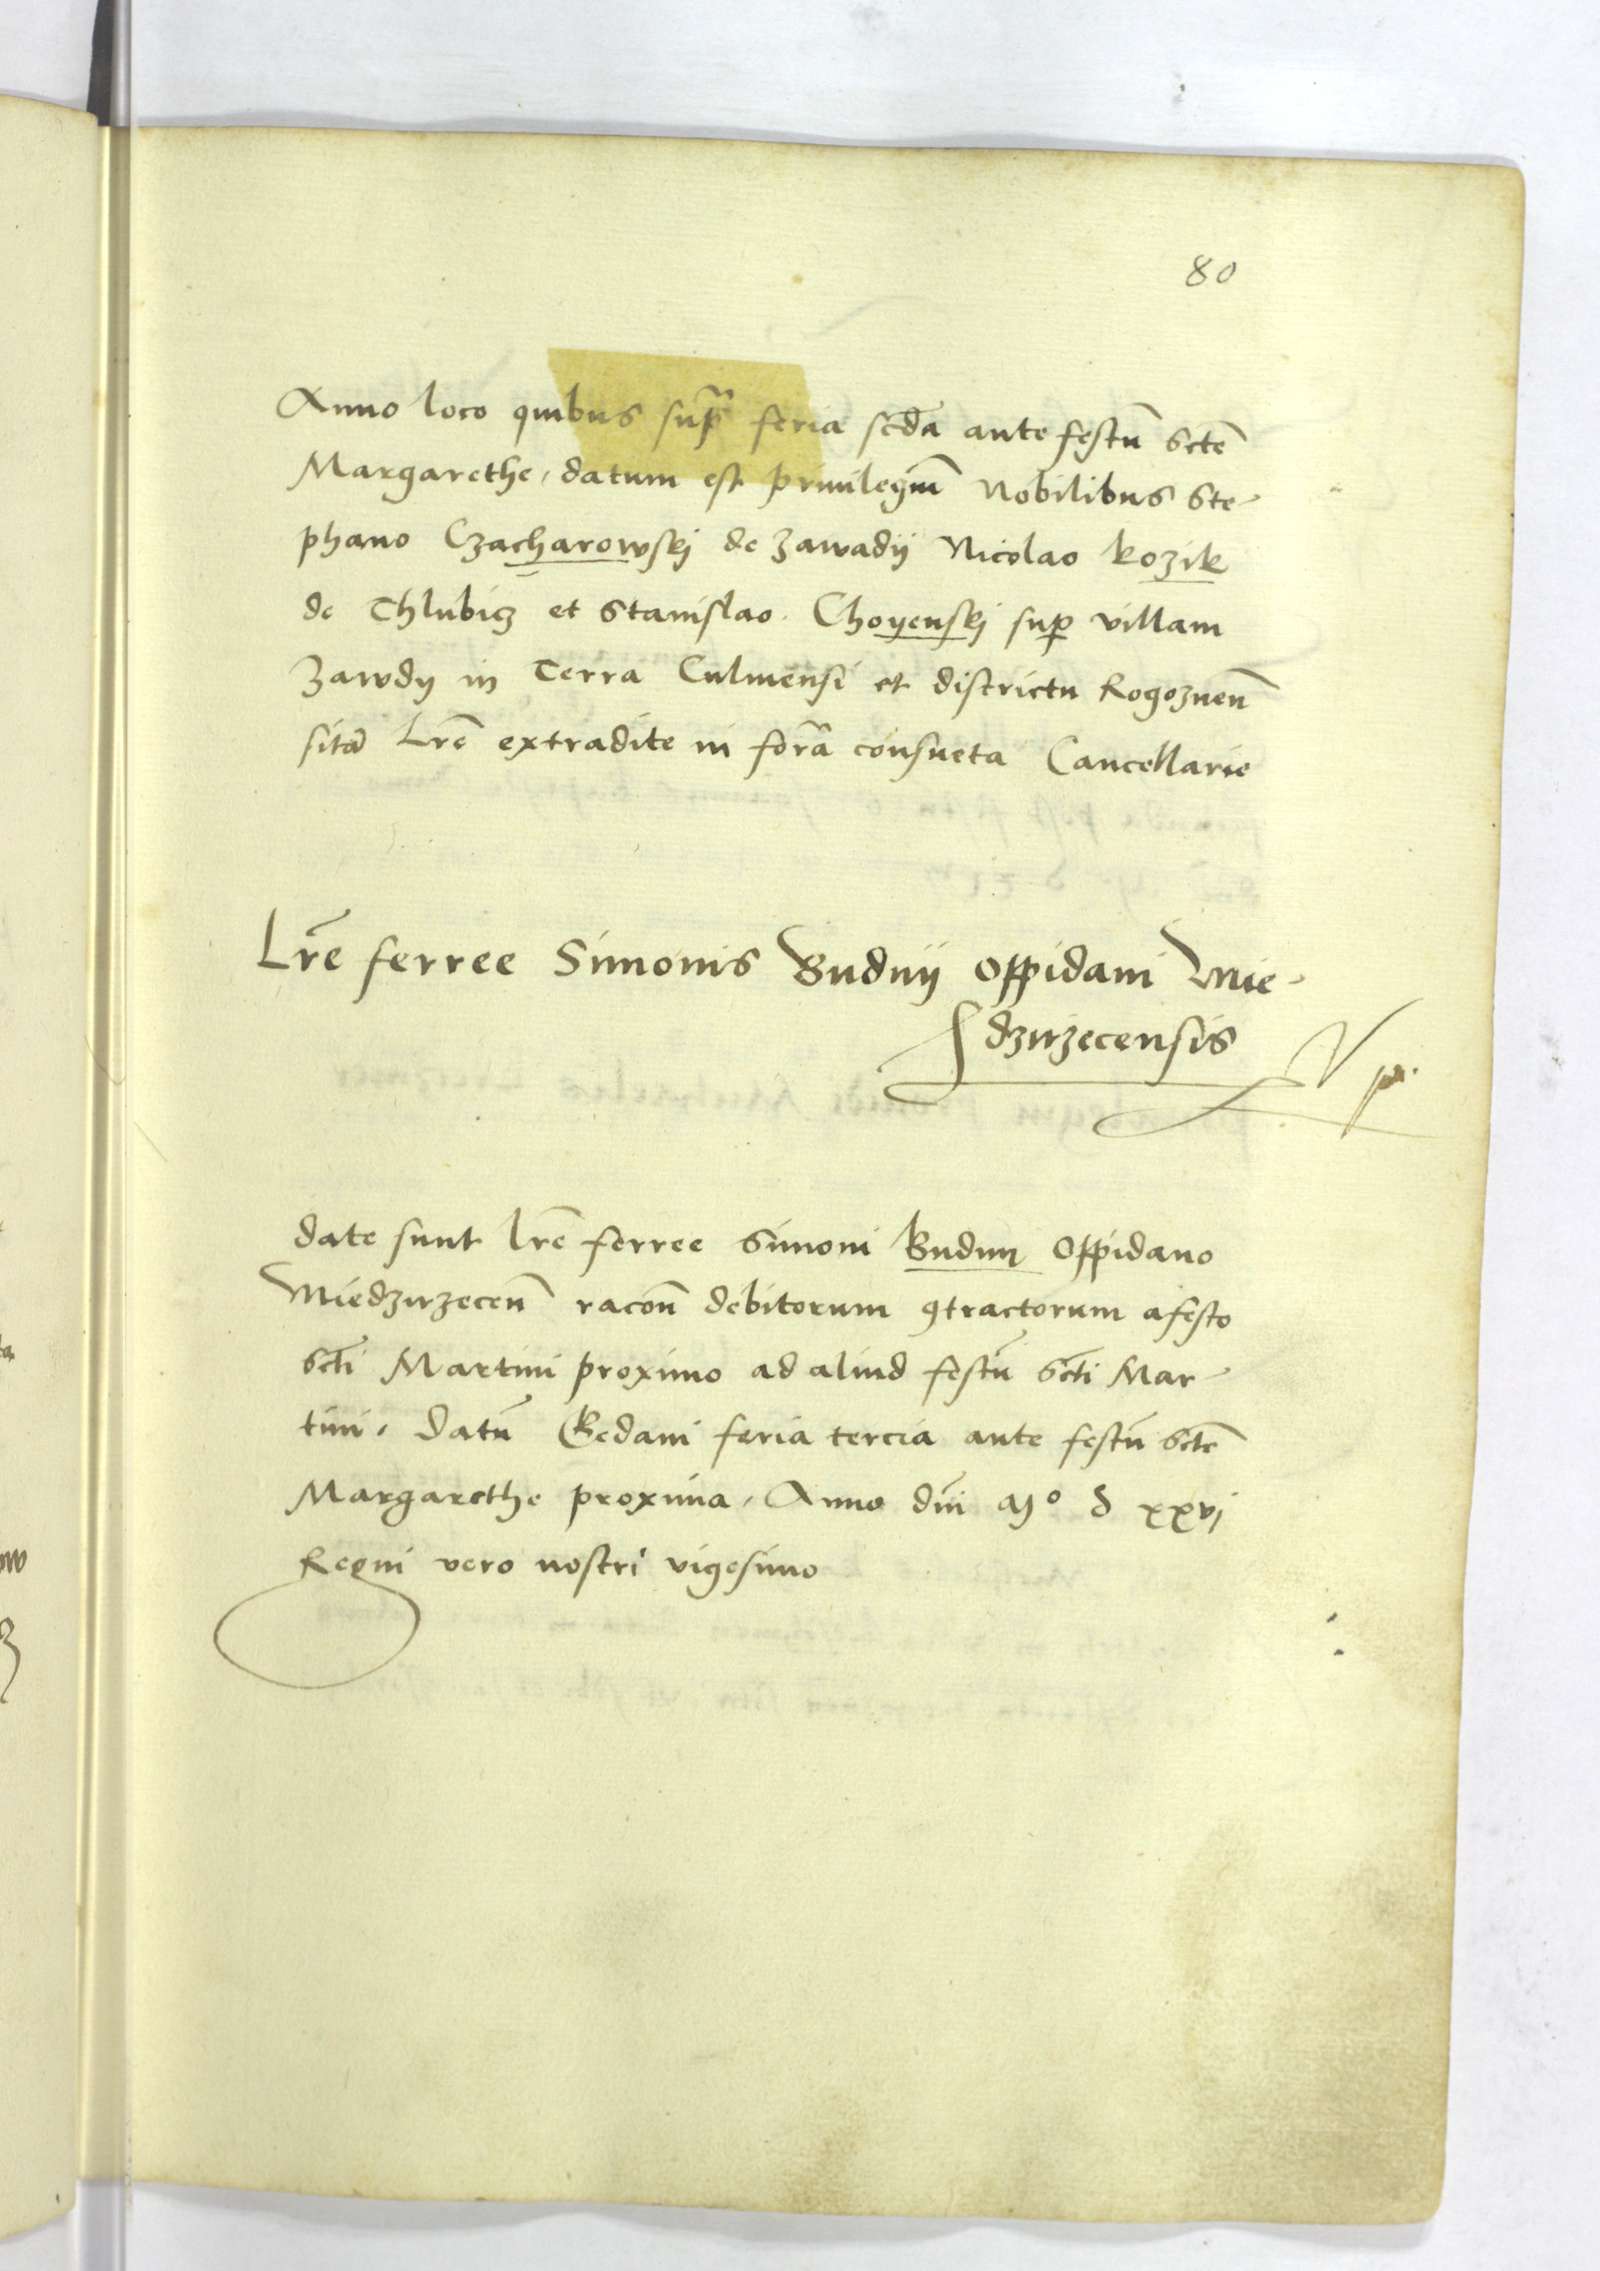 80
Anno loco quibus sup̃ feria scd̃a ante festũ Sctẽ
Margarethe, datum est priuilegiũ Nobilibus Ste-
phano Czacharowskj de Zawadÿ Nicolao Kozik
de Chlubicz et Stanislao Choyenskj sup villam
Zawdy in Terra Culmensi et districtu Rogoznen̄
sitã Lrẽ extradite in forã consueta Cancellarie
Lrẽ ferree Simonis Budnÿ Oppidani Mie-
dzirzecensis
Date sunt lrẽ ferree Simoni Budnÿ Oppidano
Miedzirzecen̄ racõn debitorum ꝯtractorum a festo
Scti Martini proximo ad aliud festũ Scti Mar-
tini, Datũ Gedani feria tercia ante festũ Sctẽ
Margarethe proxima, Anno dñi Mº D xxvj
Regni vero nostri vigesimo